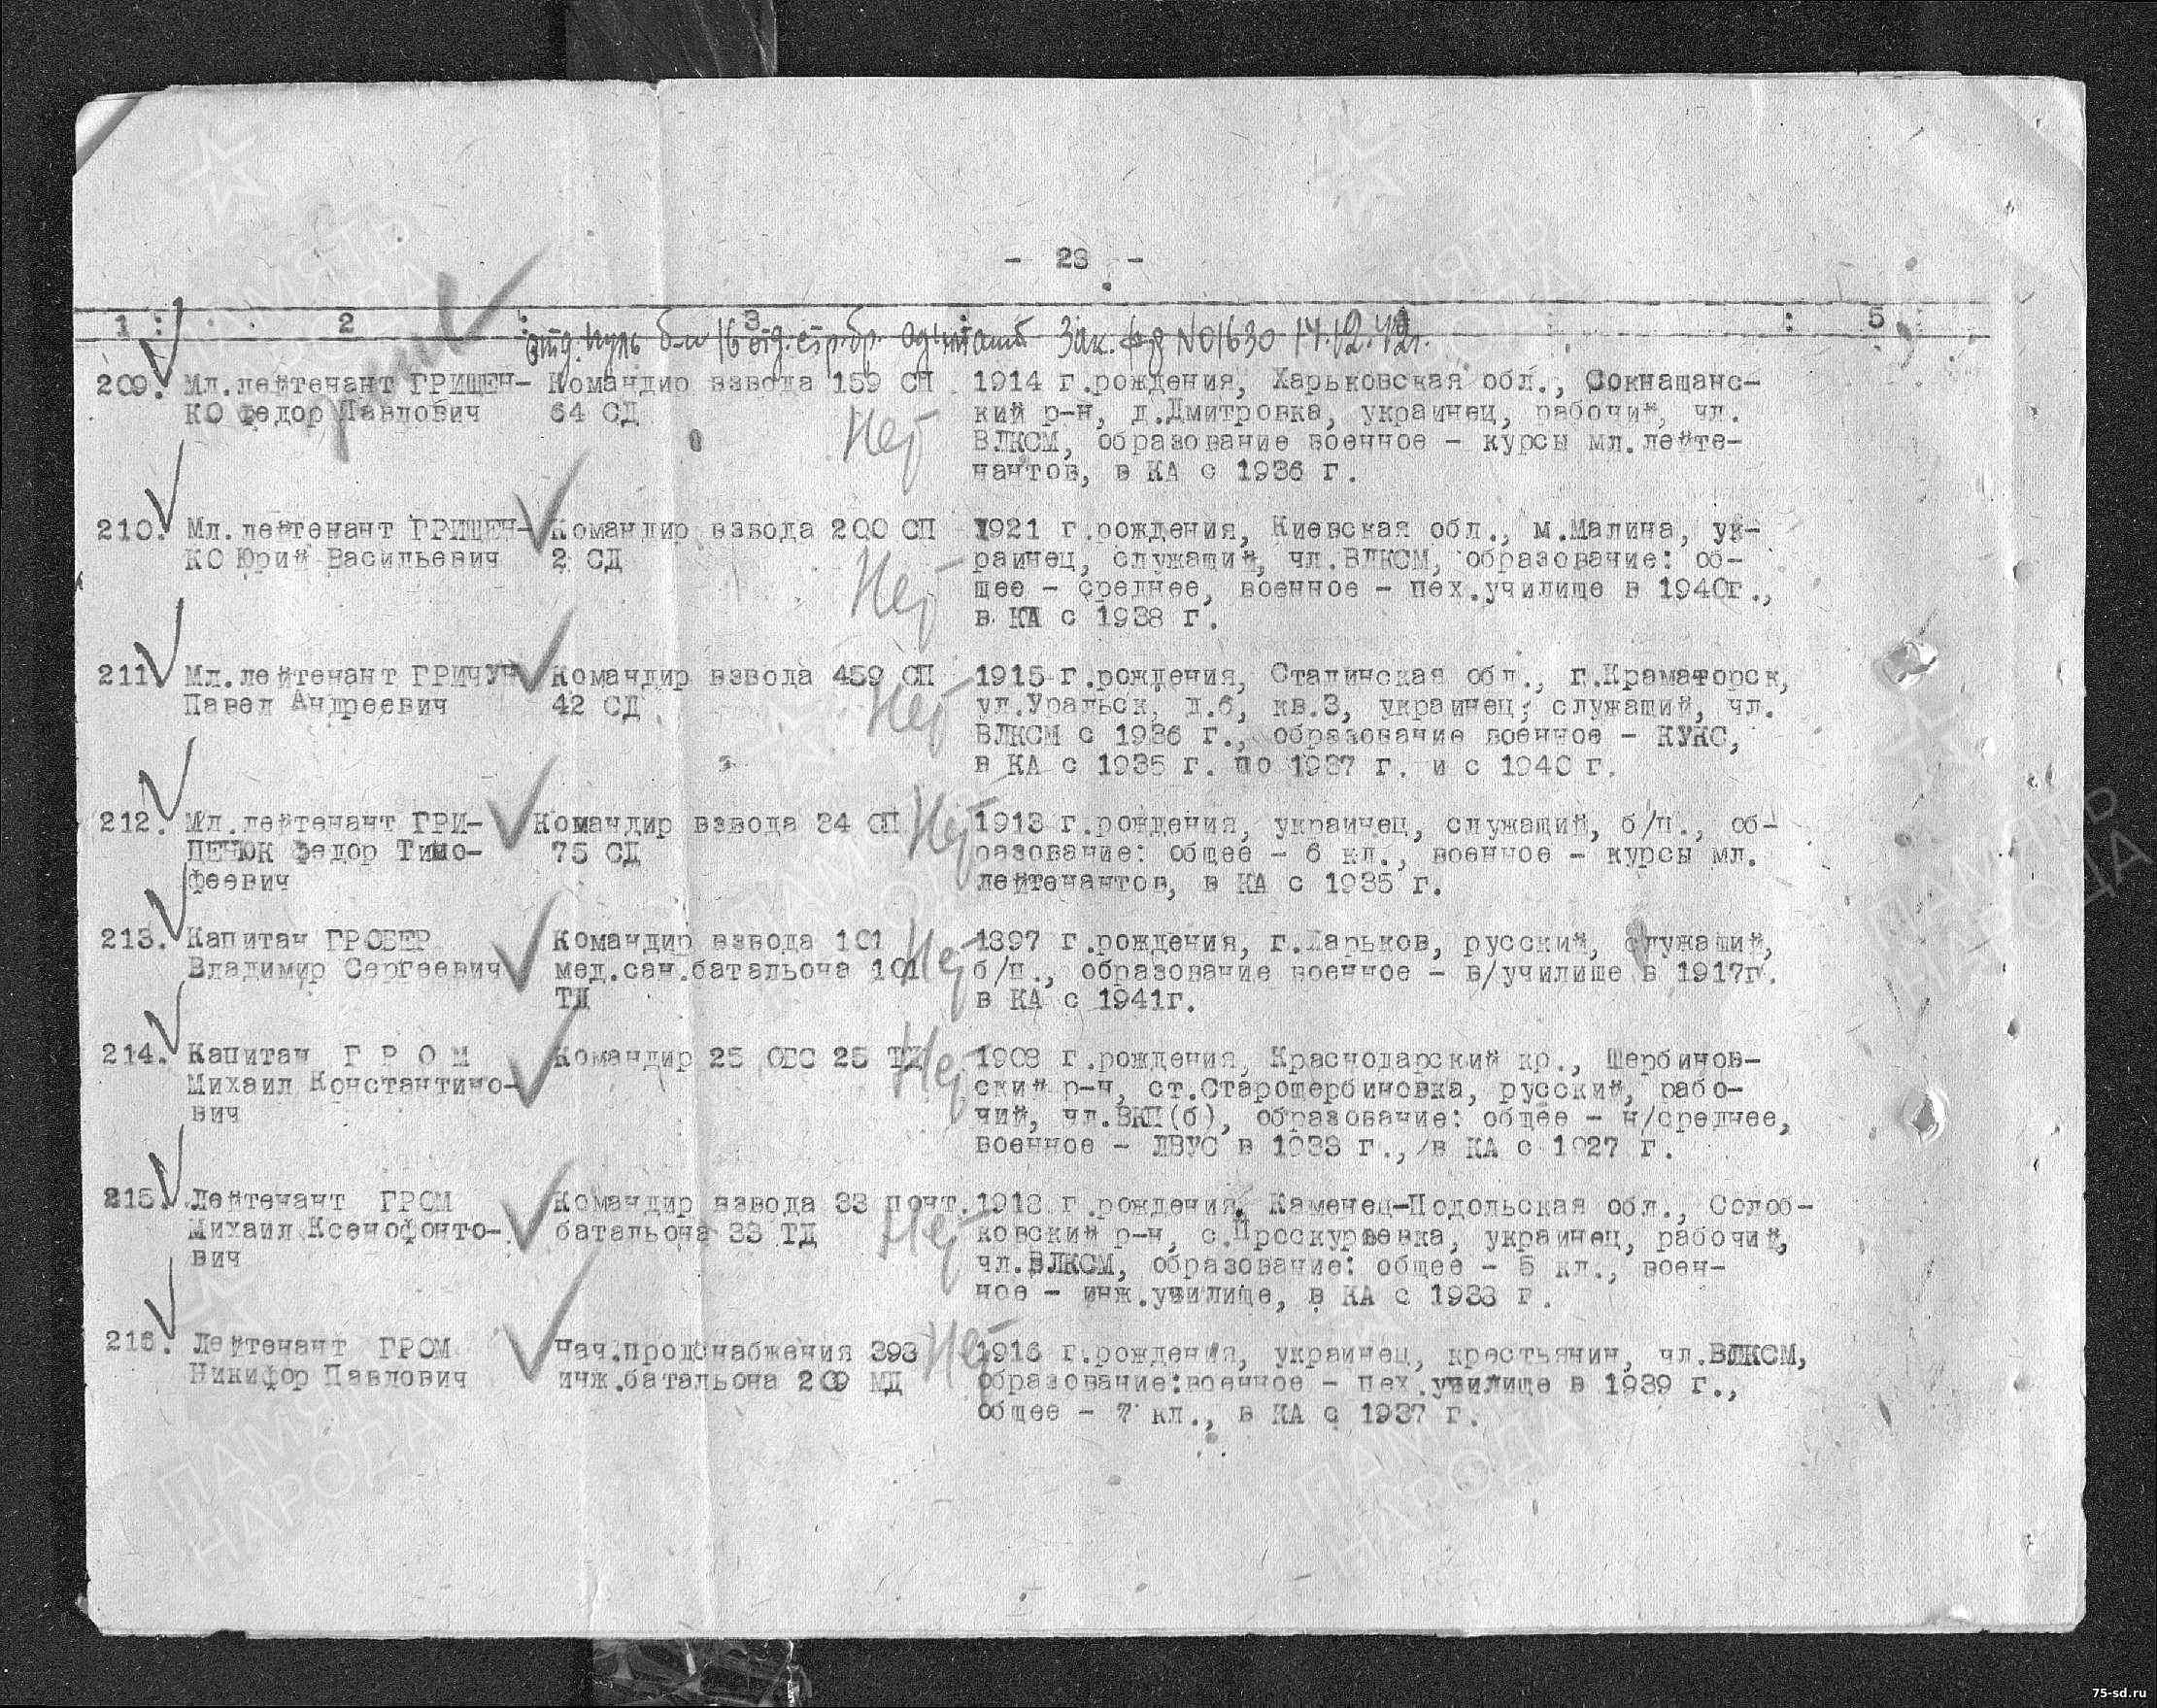 - 28 -
1 : 2 : 3 : : 5 :
Зак. №01630 14.12.42г.
209. Мл.лейтенант ГРИЩЕН- Командир взвода 159 СП 1914 г.рождения, Харьковская обл.,
КО Федор Павлович 64 СД Нет кий р-н, д.Дмитровка, украинец, рабочий, чл.
ВЛКСМ, образование военное - курсы мл.лейте-
нантов, в КА с 1936 г.
210. Мл.лейтенант ГРИЩЕН- Командир взвода 200 СП 1921 г.рождения, Киевская обл., м.Малина, ук-
КО Юрий Васильевич 2 СД Нет раинец, служащий, чл.ВЛКСМ, образование: об-
щее - среднее, военное - пех.училище в 1940г.,
в КА с 1938 г.
211. Мл.лейтенант ГРИЧУН Командир взвода 459 СП 1915 г.рождения, Сталинская обл., г.Краматорск,
Павел Андреевич 42 СД Нет ул.Уральск, д.6, кв.3, украинец, служащий, чл.
ВЛКСМ с 1936 г., образование военное - КУКС,
в КА с 1935 г. по 1937 г. и с 1940 г.
212. Мл.лейтенант ГРИ- Командир взвода 34 СП Нет 1913 г.рождения, украинец, служащий, б/п., об-
ЦЕНЮК Федор Тимо- 75 СД разование: общее - 6 кл., военное - курсы мл.
феевич лейтенантов, в КА с 1935 г.
213. Капитан ГРОБЕР Командир взвода 101 Нет 1897 г.рождения, г.Харьков, русский, служащий,
Владимир Сергеевич мед.сан.батальона 101 б/п., образование военное - в/училище в 1917г.
ТД в КА с 1941г.
214. Капитан Г Р О М Командир 25 ОБС 25 ТД Нет 1908 г.рождения, Краснодарский кр., Щербинов-
Михаил Константино- ский р-н, ст.Старощербиновка, русский, рабо-
вич чий, чл.ВКП(б), образование: общее - н/среднее,
военное - ЛВУС в 1933 г., в КА с 1927 г.
215. Лейтенант ГРОМ Командир взвода 33 понт. 1918 г.рождения, Каменец-Подольская обл., Солоб-
Михаил Ксенофонто- батальона 33 ТД Нет ковский р-н, украинец, рабочий,
вич чл.ВЛКСМ, образование: общее - 5 кл., воен-
ное - инж.училище, в КА с 1938 г.
216. Лейтенант ГРОМ нач.продснабжения 393 Нет 1916 г.рождения, украинец, крестьянин, чл.ВЛКСМ,
Никифор Павлович инж.батальона 209 МД образование:военное - пех.училище в 1939 г.,
общее - 7 кл., в КА с 1937 г.
ПАМЯТЬ
НАРОДА
75-sd.ru